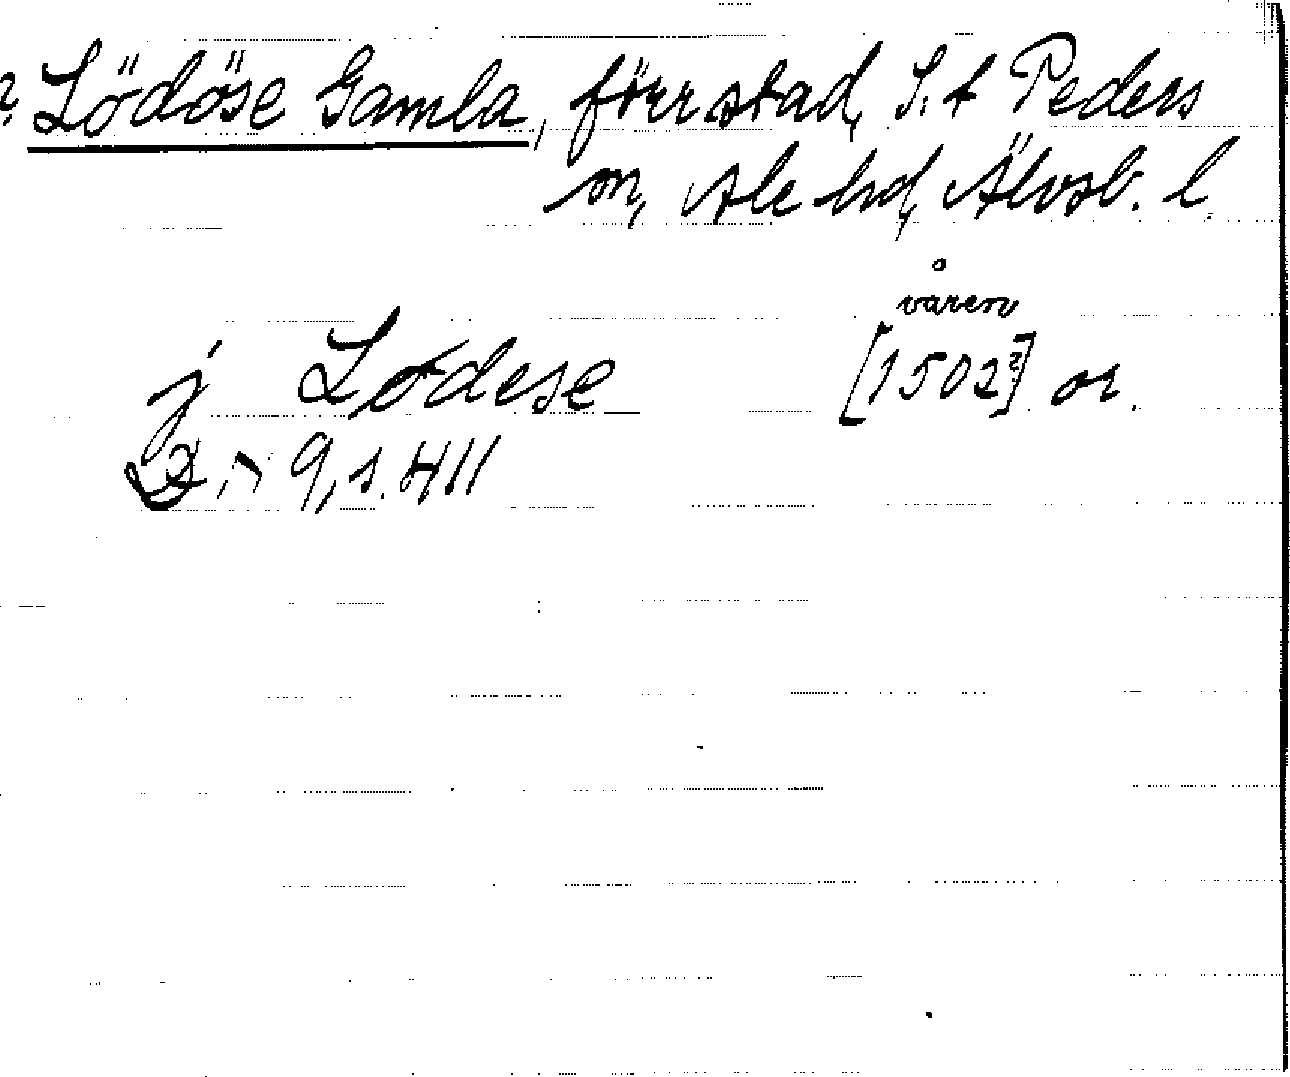 ? Lödöse Gamla, förr stad, S:t Peders
sn, Ale hd, Älvsb. l.
våren
j Lødese [1502?] or.
9, s. 411